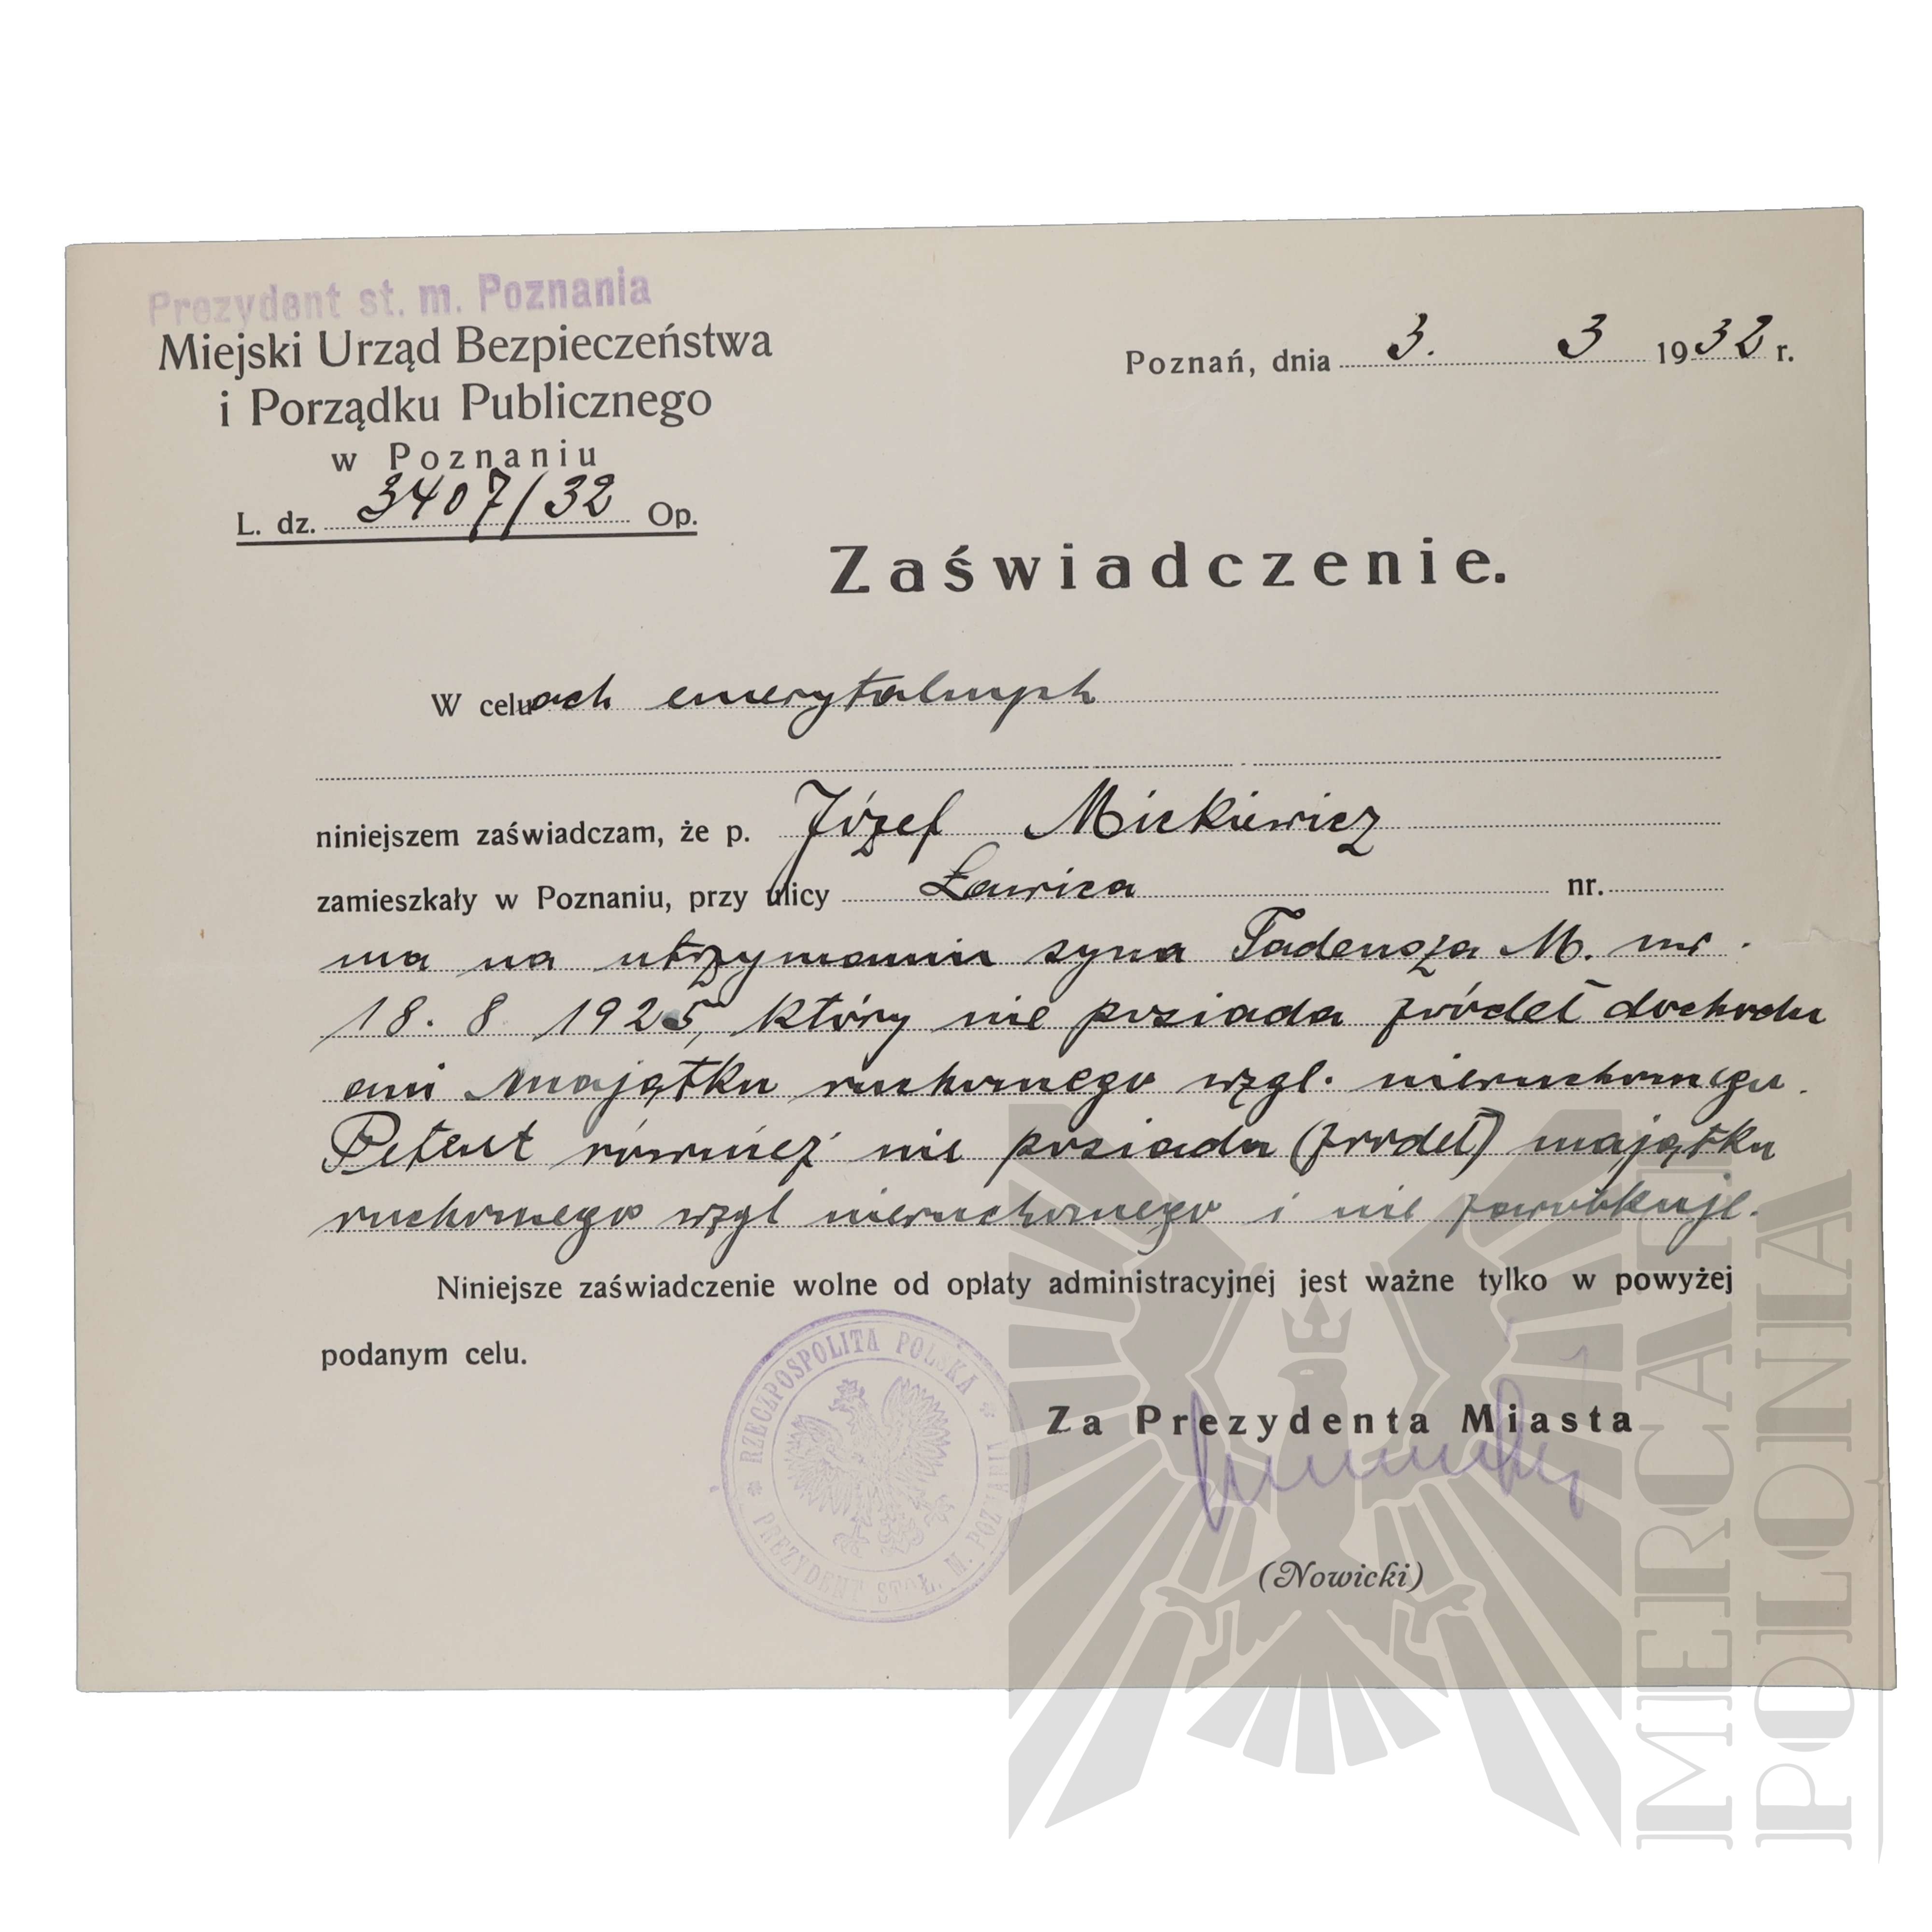 Prezydent st. m. Poznania
Miejski Urząd Bezpieczeństwa
i Porządku Publicznego
w Poznaniu
L. dz. 3407/32 Op.
Poznań, dnia 3. 3 1932 r.
Zaświadczenie.
W celuach emerytalnych
niniejszem zaświadczam, że p. Józef Mickiewicz
zamieszkały w Poznaniu, przy ulicy Ławica nr.
ma na utrzymaniu syna Tadeusza M. ur.
18. 8 1925, który nie posiada źródeł dochodu
ani majątku ruchomego wzgl. nieruchomego.
Petent również nie posiada (źródeł) majątku
ruchomego wzgl nieruchomego i nie zarobkuje.
Niniejsze zaświadczenie wolne od opłaty administracyjnej jest ważne tylko w powyżej
podanym celu.
RZECZPOSPOLITA POLSKA
PREZYDENT STOŁ. M. POZNANIA
Za Prezydenta Miasta
(Nowicki)
MERCAEI
POLONIA